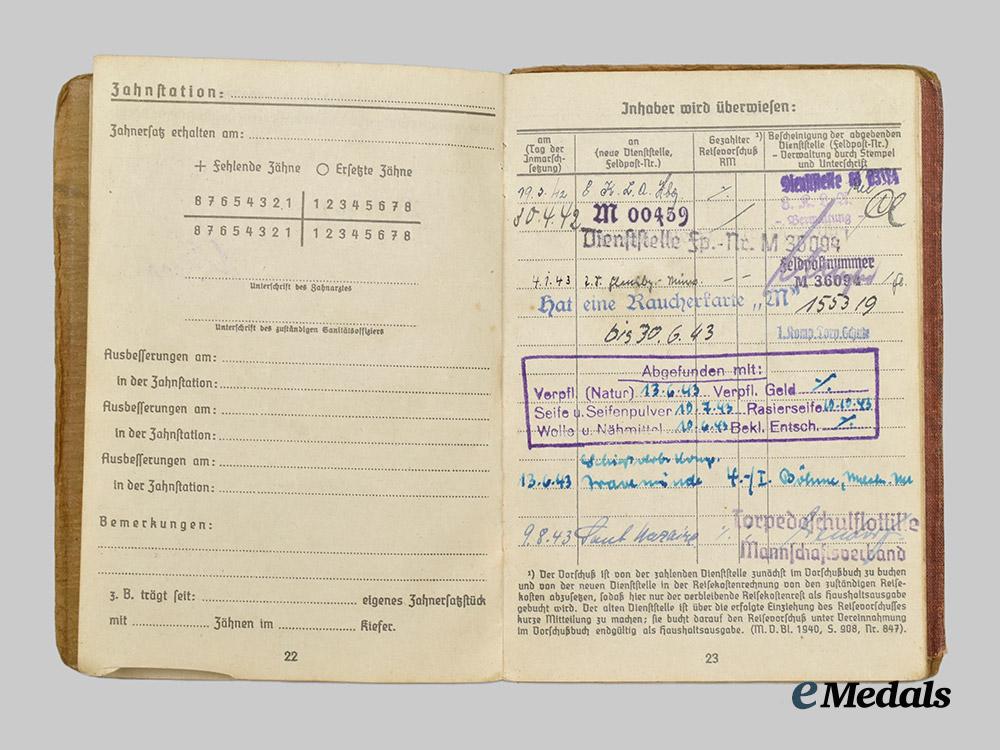 Zahnstation:
Zahnersatz erhalten am:
+ Fehlende Zähne ○ Ersetzte Zähne
8 7 6 5 4 3 2 1 | 1 2 3 4 5 6 7 8
8 7 6 5 4 3 2 1 | 1 2 3 4 5 6 7 8
Unterschrift des Zahnarztes
Unterschrift des zuständigen Sanitätsoffiziers
Ausbesserungen am:
in der Zahnstation:
Ausbesserungen am:
in der Zahnstation:
Ausbesserungen am:
in der Zahnstation:
Bemerkungen:
z. B. trägt seit: eigenes Zahnersatzstück
mit Zähnen im Kiefer.
22
Inhaber wird überwiesen:
am (Tag der Inmarsch-setzung)
an (neue Dienststelle, Feldpost-Nr.)
Gezahlter ¹) Reisevorschuß RM
Bescheinigung der abgebenden Dienststelle (Feldpost-Nr.) – Verwaltung durch Stempel und Unterschrift
Dienststelle
19.3.42
- Verwaltung -
30.4.42 M 00459
Dienststelle Fp.-Nr. M 36094
Feldpostnummer
4.1.43 M 36094
Hat eine Raucherkarte „M" 155319
bis 30.6.43 1. Komp. Torp. Schule
Abgefunden mit:
Verpfl. (Natur) 13.6.43 Verpfl. Geld
Seife u. Seifenpulver 10.7.43 Rasierseife 10.10.43
Wolle u. Nähmittel 10.6.43 Bekl. Entsch.
13.6.43 Travemünde 4.-/I. Böhme,
Torpedoschulflottille
9.8.43
Mannschaftsverband
¹) Der Vorschuß ist von der zahlenden Dienststelle zunächst im Vorschußbuch zu buchen
und von der neuen Dienststelle in der Reisekostenrechnung von den zuständigen Reise-
kosten abzusetzen, sodaß hier nur der verbleibende Reisekostenrest als Haushaltsausgabe
gebucht wird. Der alten Dienststelle ist über die erfolgte Einziehung des Reisevorschusses
kurze Mitteilung zu machen; sie bucht darauf den Reisevorschuß unter Vereinnahmung
im Vorschußbuch endgültig als Haushaltsausgabe. (M. D. Bl. 1940, S. 908, Nr. 847).
23
eMedals